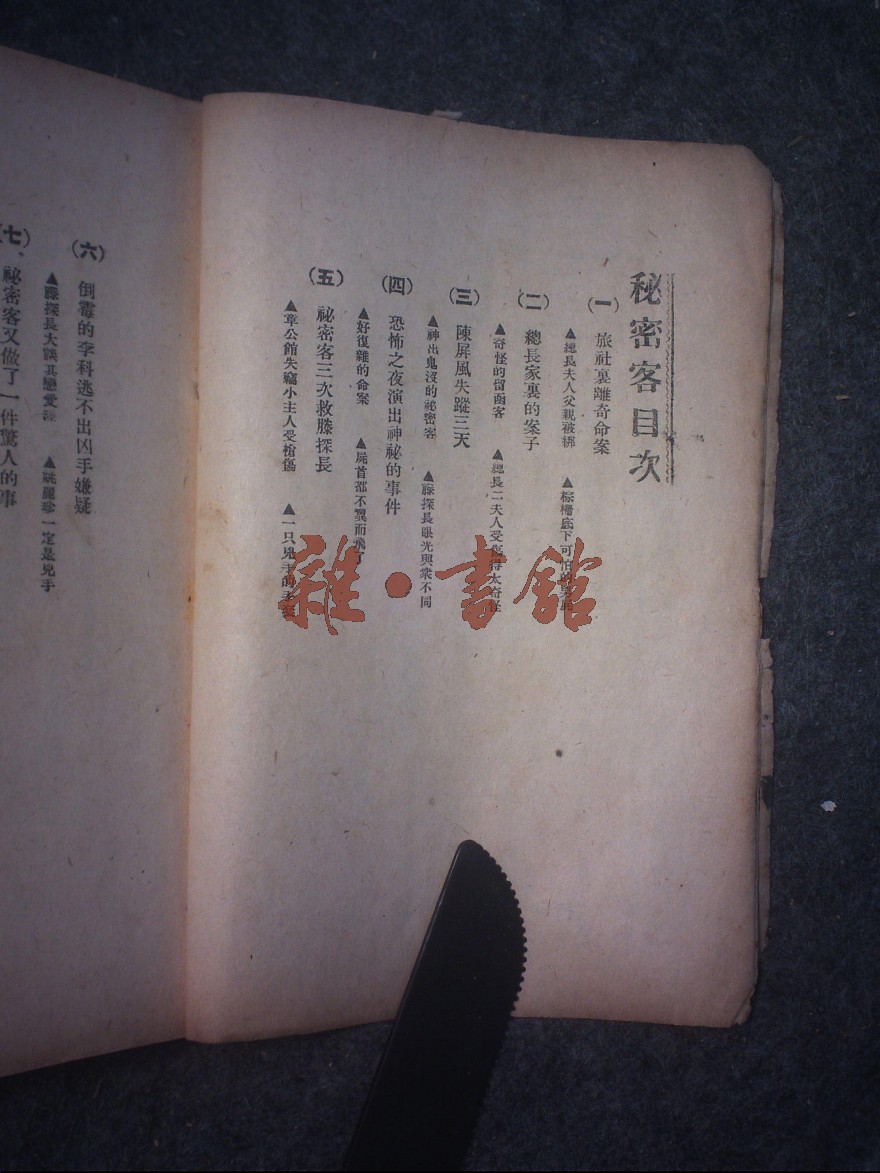 秘密客目次
(一) 旅社裏離奇命案
▲總長夫人父親被綁 ▲棕棚底下可怕的
(二) 總長家裏的案子
▲奇怪的留函客 ▲總長二夫人受傷得太奇怪
(三) 陳屏風失蹤三天
▲神出鬼沒的祕密客 ▲藤探長眼光與衆不同
(四) 恐怖之夜演出神祕的事件
▲好復雜的命案 ▲屍首都不翼而飛了
(五) 祕密客三次救滕探長
▲章公館失竊小主人受槍傷 ▲一只兇手的手
(六) 倒霉的李科逃不出凶手嫌疑
▲藤探長大談其戀愛 ▲姚麗珍一定是兇手
(七) 祕密客又做了一件驚人的事
雜·書館